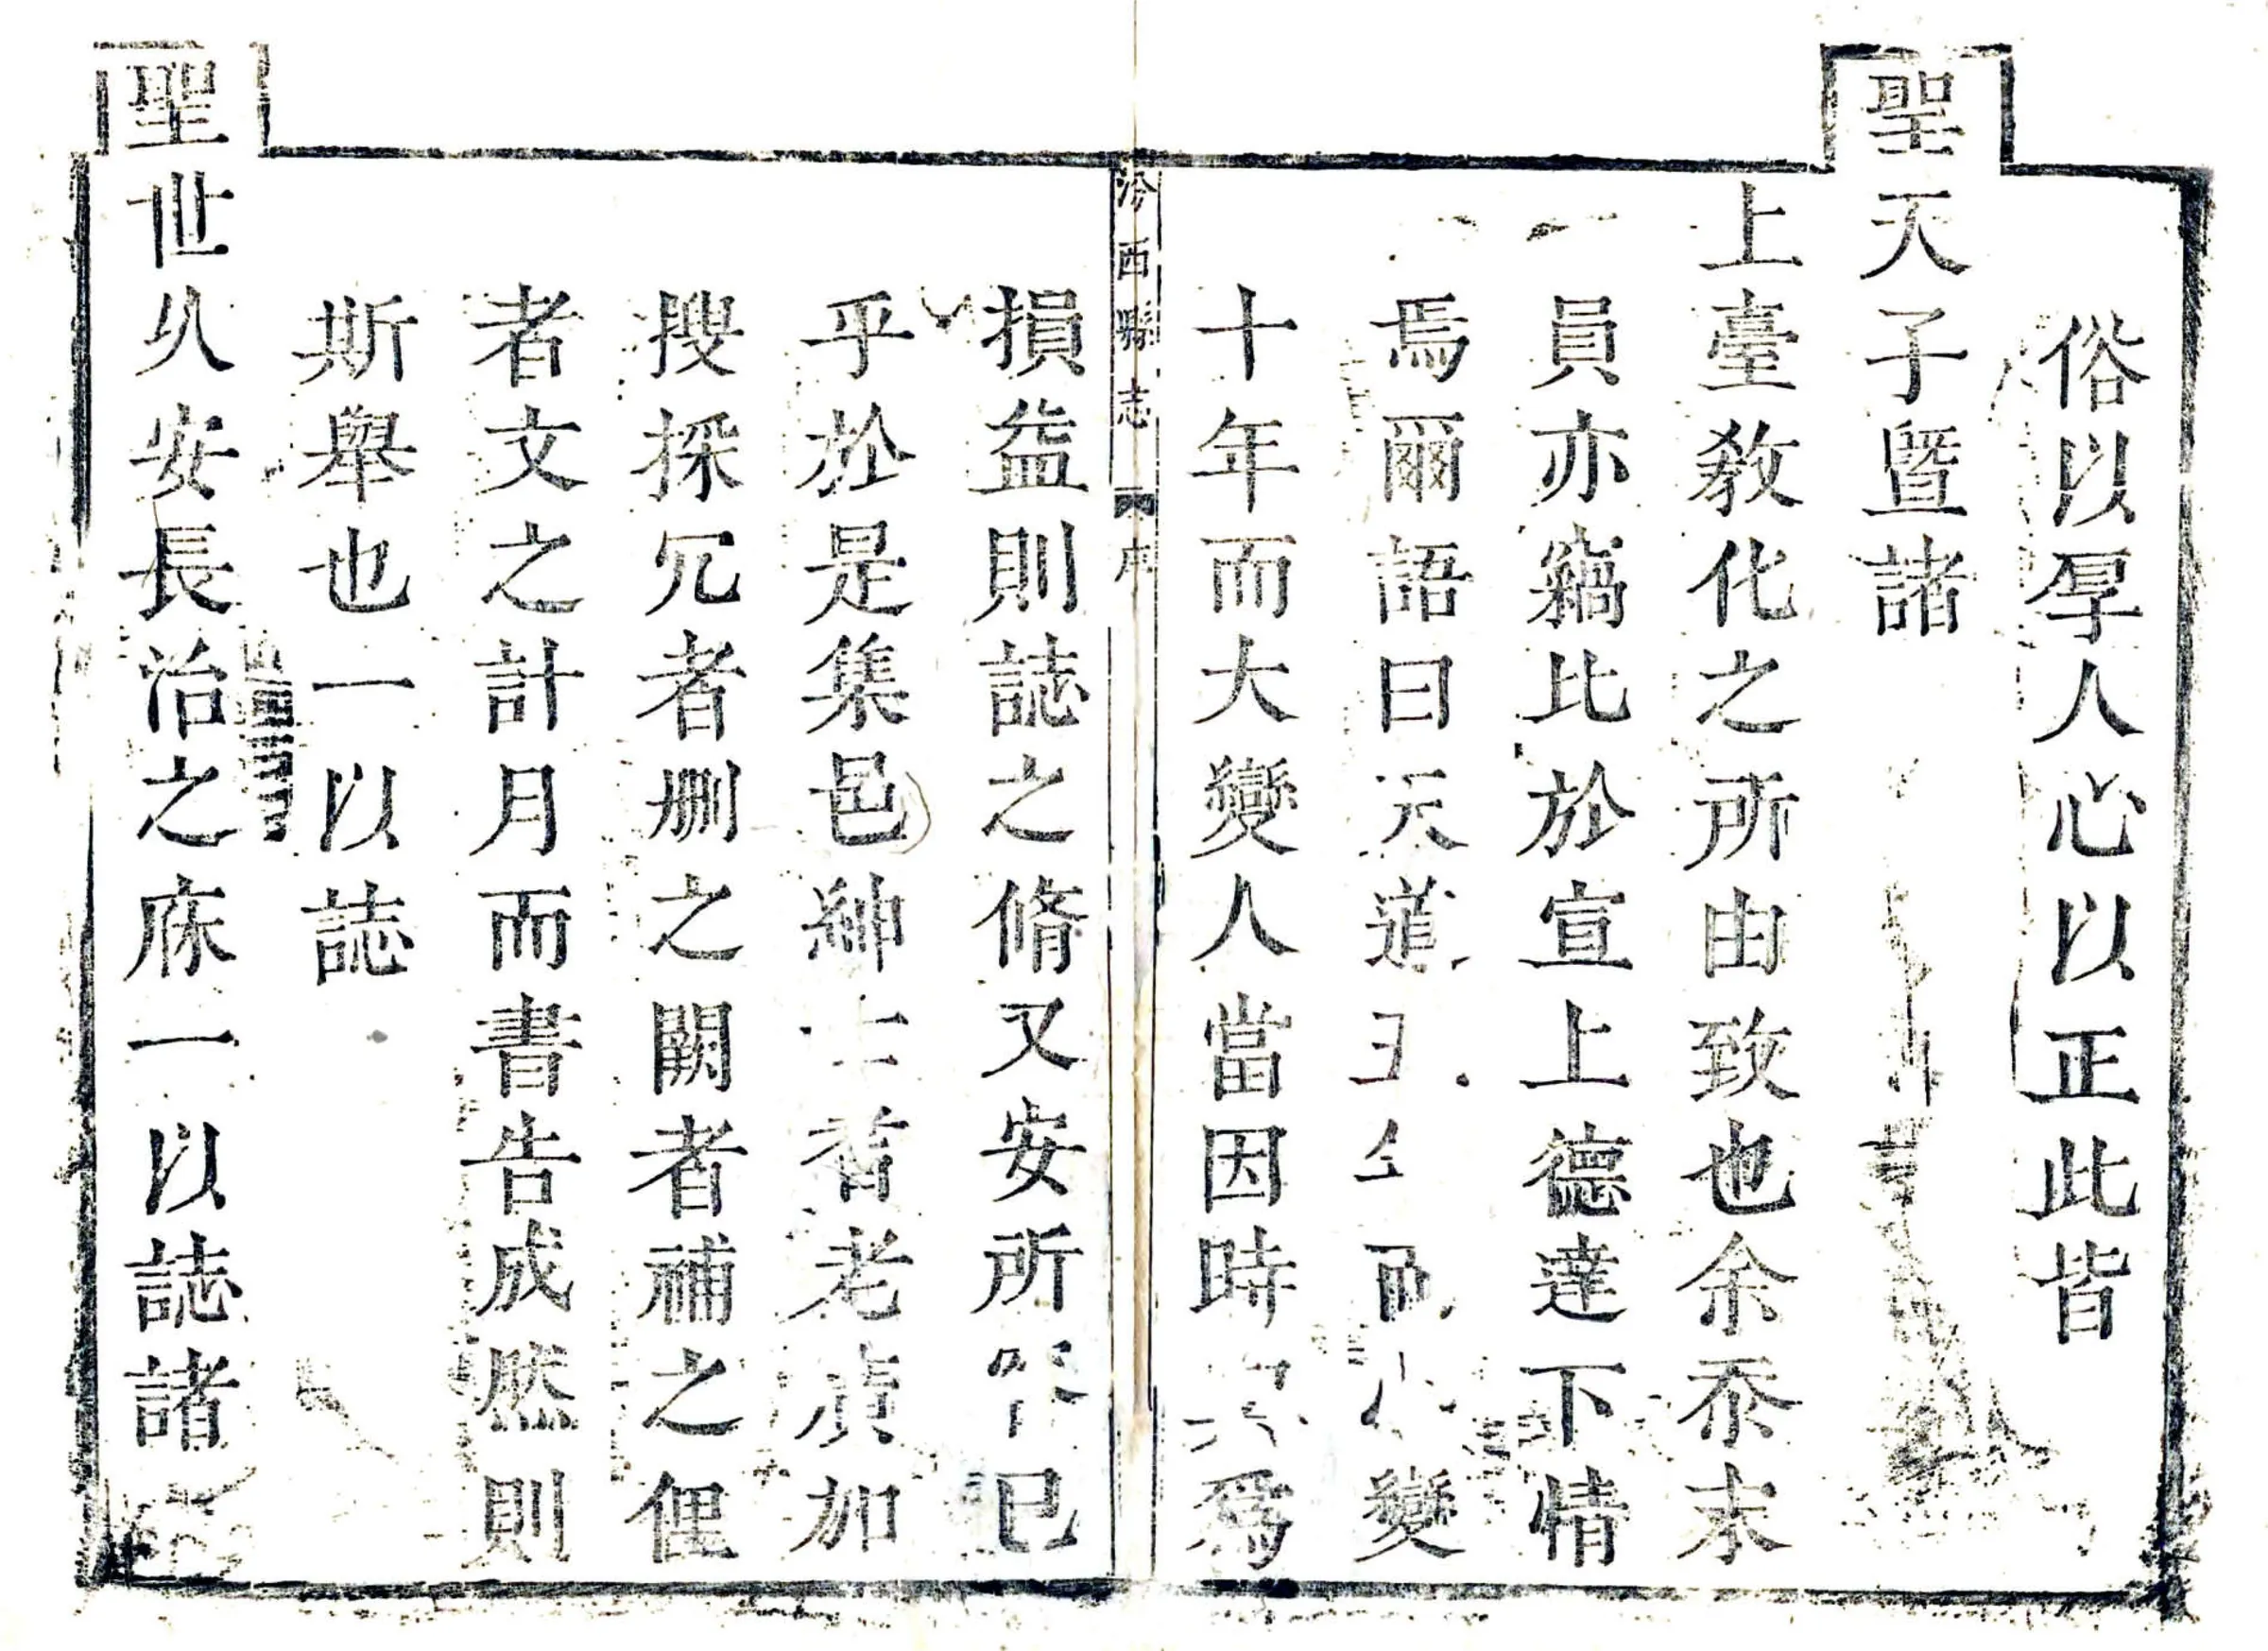 俗以厚人心以正此皆
聖天子暨諸
上臺教化之所由致也余忝末
員亦竊比於宣上德達下情
焉爾語曰天道變
十年而大變人當因時爲
汾西縣志 序
損益則誌之脩又安所已
乎於是集邑紳士耆老廣加
搜採冗者刪之闕者補之俚
者文之計月而書告成然則
斯舉也一以誌
聖世久安長治之庥一以誌諸